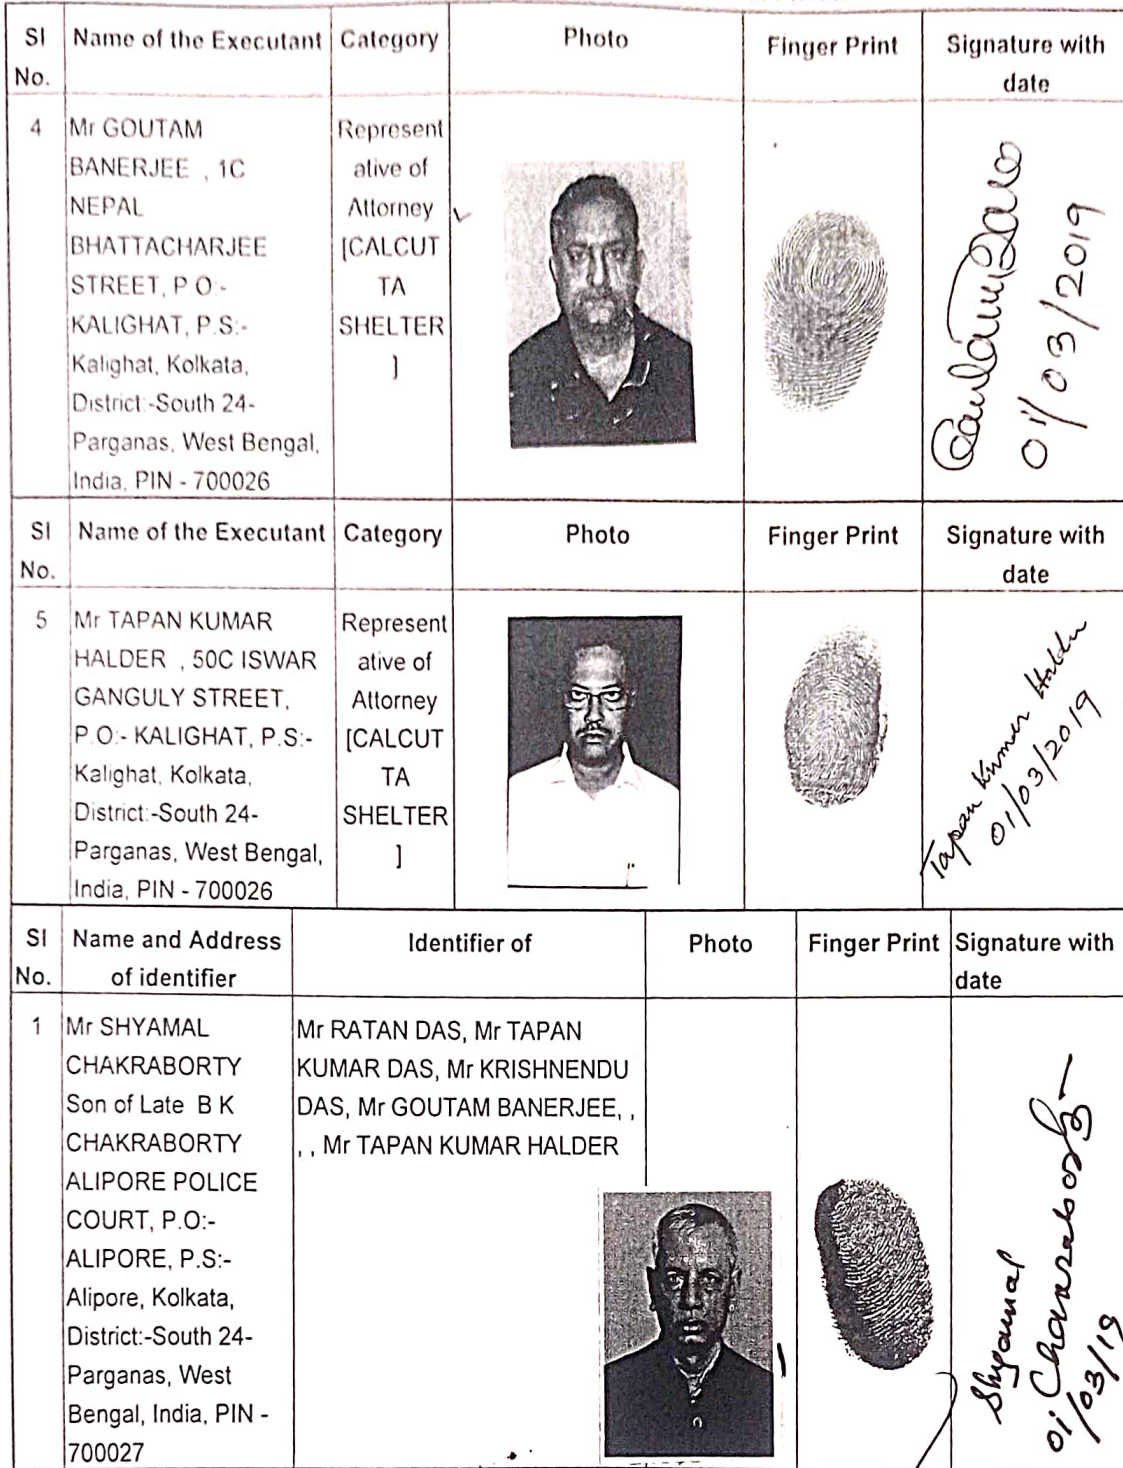 SI No. Name of the Executant Category Photo Finger Print Signature with date
4
Mr GOUTAM
BANERJEE , 1C
NEPAL
BHATTACHARJEE
STREET, P.O:-
KALIGHAT, P.S:-
Kalighat, Kolkata,
District:-South 24-
Parganas, West Bengal,
India, PIN - 700026
Represent
ative of
Attorney
[CALCUT
TA
SHELTER
]
01/03/2019
SI No. Name of the Executant Category Photo Finger Print Signature with date
5
Mr TAPAN KUMAR
HALDER , 50C ISWAR
GANGULY STREET,
P.O:- KALIGHAT, P.S:-
Kalighat, Kolkata,
District:-South 24-
Parganas, West Bengal,
India, PIN - 700026
Represent
ative of
Attorney
[CALCUT
TA
SHELTER
]
Tapan Kumar Halder
01/03/2019
SI No. Name and Address of identifier Identifier of Photo Finger Print Signature with date
1
Mr SHYAMAL
CHAKRABORTY
Son of Late B K
CHAKRABORTY
ALIPORE POLICE
COURT, P.O:-
ALIPORE, P.S:-
Alipore, Kolkata,
District:-South 24-
Parganas, West
Bengal, India, PIN -
700027
Mr RATAN DAS, Mr TAPAN
KUMAR DAS, Mr KRISHNENDU
DAS, Mr GOUTAM BANERJEE, ,
, , Mr TAPAN KUMAR HALDER
Shyamal
01/03/19